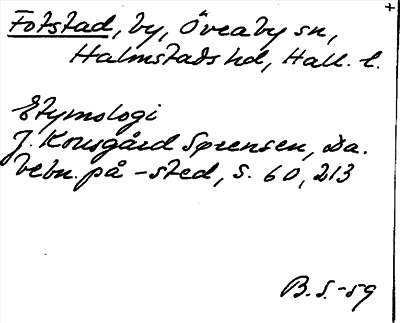 Fotstad, by, Övraby sn,
Halmstads hd, Hall. l.
Etymologi
J. Kousgård Sørensen, Da.
bebn. på -sted, s. 60, 213
B.S.-59